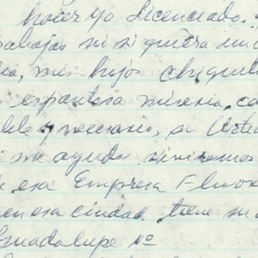 hacer yo Licenciado.
trabajar ni si quiera
mis hijos chiquit
espantosa miseria, ca
y necesario, si Uste
me ayuda
esa Empresa Fluor
en esa ciudad, tiene su
Guadalupe No